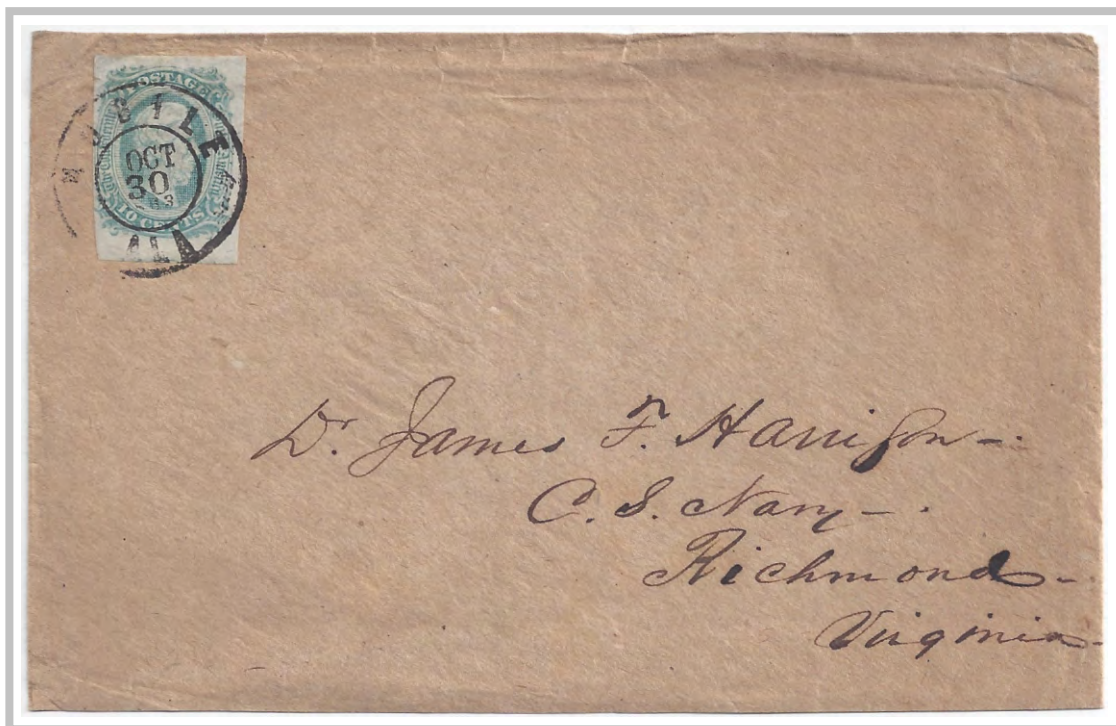 POSTAGE
MOBILE
OCT
30
10 CENTS
ALA
Dr. James F. Harrison -.
C. S. Navy -.
Richmond -
Virginia -